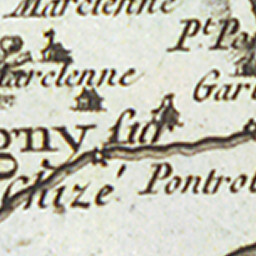 Marcienne
P.t Po
arcienne
Gar
gny sur
Chizé
Pontrol